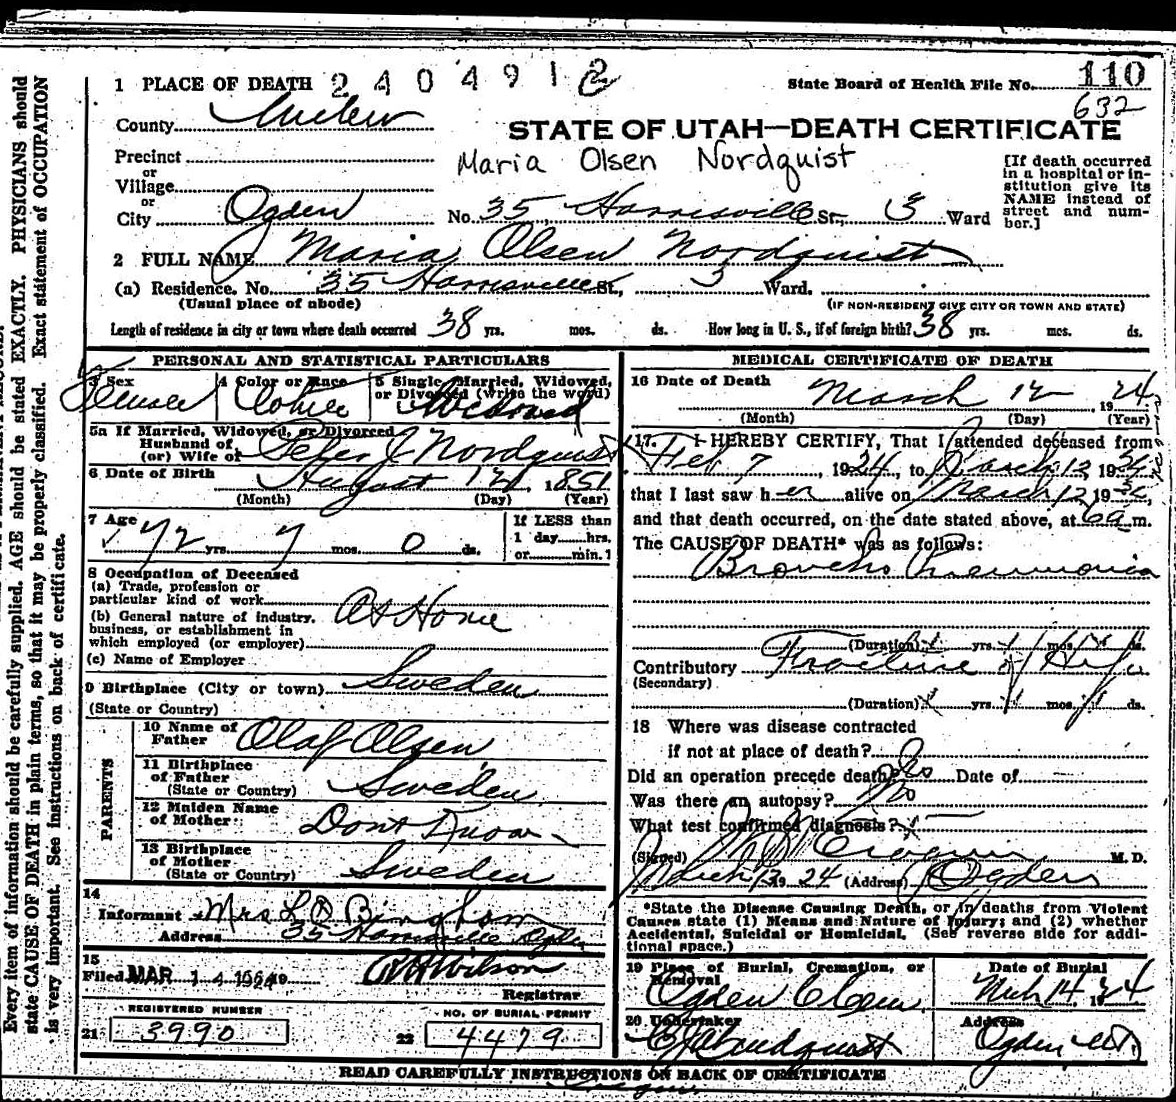 110
1 PLACE OF DEATH 2404912 State Board of Health File No.
632
County
STATE OF UTAH—DEATH CERTIFICATE
Precinct
Maria Olsen Nordquist
or
Village
or
City Ogden No. 35 Harrisville St., 3 Ward
[If death occurred
in a hospital or in-
stitution give its
NAME instead of
street and num-
ber.]
2 FULL NAME Maria Olsen Nordquist
(a) Residence. No. 35 Harrisville St., 3 Ward.
(Usual place of abode) (IF NON-RESIDENT GIVE CITY OR TOWN AND STATE)
Length of residence in city or town where death occurred 38 yrs. mos. ds. How long in U. S., if of foreign birth? 38 yrs. mos. ds.
PERSONAL AND STATISTICAL PARTICULARS
3 Sex 4 Color or Race 5 Single, Married, Widowed,
or Divorced (write the word)
Female White Widowed
5a If Married, Widowed, or Divorced
Husband of
(or) Wife of Peter J Nordquist
6 Date of Birth August 12 1851
(Month) (Day) (Year)
7 Age If LESS than
72 yrs. 7 mos. 0 ds. 1 day hrs.
or min. 1
8 Occupation of Deceased
(a) Trade, profession or
particular kind of work At Home
(b) General nature of industry,
business, or establishment in
which employed (or employer)
(c) Name of Employer
9 Birthplace (City or town) Sweden
(State or Country)
PARENTS
10 Name of
Father Olaf Olsen
11 Birthplace
of Father
(State or Country) Sweden
12 Maiden Name
of Mother Dont Know
13 Birthplace
of Mother
(State or Country) Sweden
14
Informant Mrs L D Bingham
Address 35 Harrisville Ogden
15
Filed MAR 14 1924 Wilson
Registrar
REGISTERED NUMBER NO. OF BURIAL PERMIT
21 3990 22 4479
MEDICAL CERTIFICATE OF DEATH
16 Date of Death March 12, 1924
(Month) (Day) (Year)
17. I HEREBY CERTIFY, That I attended deceased from
Feb 7, 1924, to March 12, 1924,
that I last saw her alive on March 12, 1924,
and that death occurred, on the date stated above, at 6 a m.
The CAUSE OF DEATH* was as follows:
Broncho Pneumonia
(Duration) yrs. mos. ds.
Contributory Fracture of Hip
(Secondary)
(Duration) yrs. mos. ds.
18 Where was disease contracted
if not at place of death?
Did an operation precede death? No Date of
Was there an autopsy? No
What test confirmed diagnosis?
(Signed) M. D.
March 13 1924 (Address) Ogden
*State the Disease Causing Death, or in deaths from Violent
Causes state (1) Means and Nature of Injury; and (2) whether
Accidental, Suicidal or Homicidal. (See reverse side for addi-
tional space.)
19 Place of Burial, Cremation, or Date of Burial
Removal
Ogden Cem Mch 14 1924
20 Undertaker Address
Lindquist Ogden Ut
READ CAREFULLY INSTRUCTIONS ON BACK OF CERTIFICATE
Every item of information should be carefully supplied. AGE should be stated EXACTLY. PHYSICIANS should
state CAUSE OF DEATH in plain terms, so that it may be properly classified. Exact statement of OCCUPATION
is very important. See instructions on back of certificate.